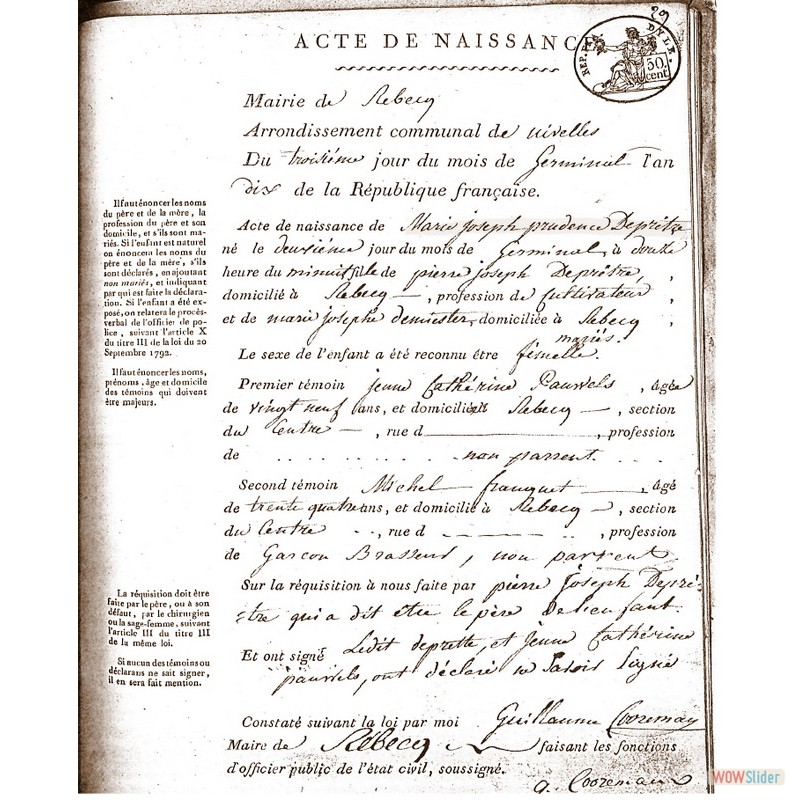 29
ACTE DE NAISSANCE
REP. FR. DYLE.
50 cent
Mairie de Rebecq
Arrondissement communal de nivelles
Du troisiéme jour du mois de Germinal l'an
dix de la République française.
Il faut énoncer les noms
du père et de la mère, la
profession du père et son
domicile, et s'ils sont ma-
riés. Si l'enfant est naturel
on énoncera les noms du
père et de la mère, s'ils
sont déclarés, en ajoutant
non mariés, et indiquant
par qui est faite la déclara-
tion. Si l'enfant a été ex-
posé, on relatera le procès-
verbal de l'officier de po-
lice, suivant l'article X
du titre III de la loi du 20
Septembre 1792.
Il faut énoncer les noms,
prénoms, âge et domicile
des témoins qui doivent
être majeurs.
Acte de naissance de Marie joseph prudence Deprêtre
né le deuxiéme jour du mois de Germinal, à douze
heure du minuit fille de pierre joseph Deprêtre,
domicilié à Rebecq, profession de Cultivateur,
et de marie josephe demiester, domiciliée à Rebecq,
mariés.
Le sexe de l'enfant a été reconnu être fémelle.
Premier témoin jenne Cathérine Pauwels, âgée
de vingt neuf ans, et domiciliée à Rebecq, section
du Centre, rue d, profession
de non parrent.
Second témoin Michel franquet, âgé
de trente quatre ans, et domicilié à Rebecq, section
du Centre, rue d, profession
de Garcon Brasseur, non parrent
Sur la réquisition à nous faite par pierre Joseph Deprê-
tre qui a dit être le père de lenfant.
Et ont signé Ledit deprette, et jenne Cathérine
pauwels, ont déclaré ne savoir signé
La réquisition doit être
faite par le père, ou à son
défaut, par le chirurgien
ou la sage-femme, suivant
l'article III du titre III
de la même loi.
Si aucun des témoins ou
déclarans ne sait signer,
il en sera fait mention.
Constaté suivant la loi par moi Guillaume Cooreman
Maire de Rebecq faisant les fonctions
d'officier public de l'état civil, soussigné.
G. Cooreman
WOWSlider